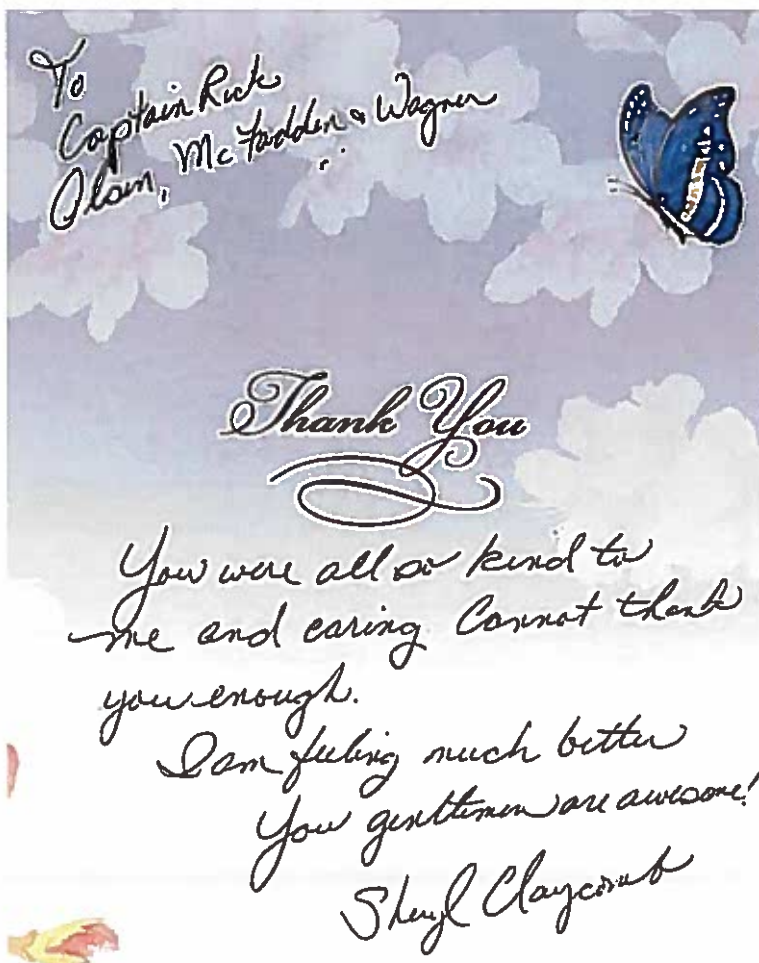 To
Captain Rick
Olsen, McFadden & Wagner
Thank You
You were all so kind to
me and caring Cannot thank
you enough.
I am feeling much better
You gentlemen are awesome!
Sheryl Claycomb